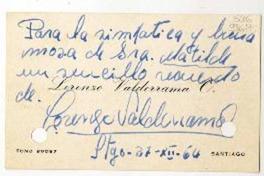 Para la simpatica y buena
moza de Sra. Matilde
un sencillo recuerdo
de.
Lorenzo Valderrama O.
Lorenzo Valderrama
FONO
SANTIAGO
Stgo-27-XII-64